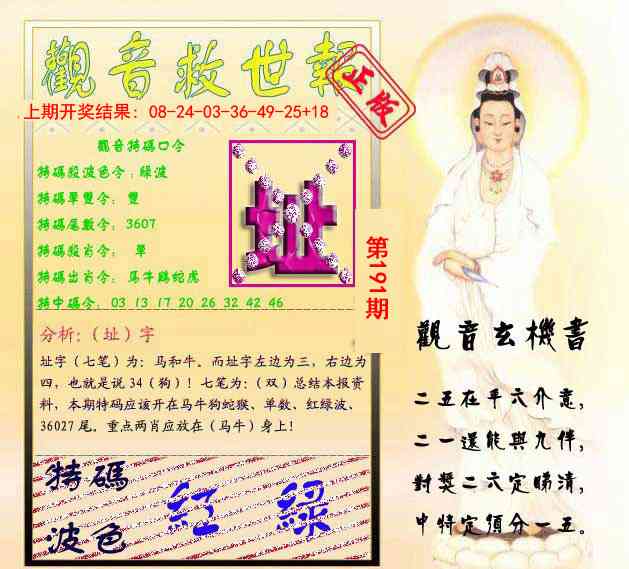 觀音救世報
正版
上期开奖结果：08-24-03-36-49-25+18
觀音特碼口令
特碼殺波色令：綠波
特碼單雙令： 雙
特碼尾數令： 3607
特碼殺肖令： 單
特碼出肖令： 馬牛鷄蛇虎
特中碼令： 03 13 17 20 26 32 42 46
址
第191期
分析:（址）字
址字（七笔）为：马和牛。而址字左边为三，右边为
四，也就是说 34（狗）！七笔为：（双）总结本报资
料，本期特码应该开在马牛狗蛇猴、单数、红绿波、
36027 尾。重点两肖应放在（马牛）身上！
特碼
波色
紅 綠
觀音玄機書
二五在平六介意，
二一還能與九伴，
對獎二六定睇清，
中特定預分一五。